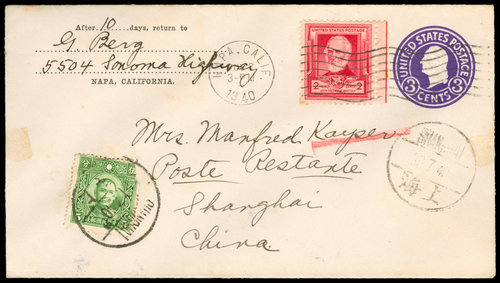 After 10 days, return to
G Berg
5504 Sonoma Highway
NAPA, CALIFORNIA.
NAPA, CALIF.
3-PM
1940
UNITED STATES POSTAGE
2 2
UNITED STATES POSTAGE
3 3
CENTS
Mrs. Manfred Kasper
Poste Restante
Shanghai
China.
SHANGHAI
上海